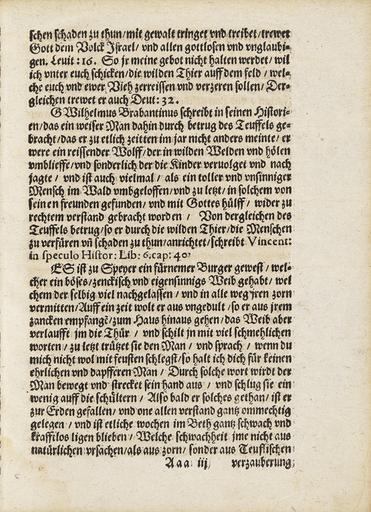 schen schaden zu thun/mit gewalt tringet vnd treibet/trewet
Gott dem Volck Israel/ vnd allen gottlosen vnd vnglaubi-
gen. Leuit: 16. So jr meine gebot nicht halten werdet/ wil
ich vnter euch schicken/die wilden Thier auff dem feld / wel-
che euch vnd ewer Vieh zerreissen vnd verzeren sollen/ Der-
gleichen trewet er auch Deut: 32.
GWilhelmus Brabantinus schreibt in seinen Histori-
en/das ein weiser Man dahin durch betrug des Teuffels ge-
bracht/das er zu etlich zeitten im jar nicht anders meinte/ er
were ein reissender Wolff/der in wilden Welden vnd hölen
vmblieffe/vnd sonderlich der die Kinder veruolget vnd nach
jagte / vnd ist auch vielmal / als ein toller vnd vnsinniger
Mensch im Wald vmbgeloffen/vnd zu letzt/ in solchem von
seinen freunden gefunden/ vnd mit Gottes hülff/ wider zu
rechtem verstand gebracht worden / Von dergleichen des
Teuffels betrug/so er durch die wilden Thier/die Menschen
zu verfüren vñ schaden zu thun/anrichtet/schreibt Vincent:
in speculo Histor: Lib: 6.cap: 40
ES ist zu Speyer ein fürnemer Burger gewest/ wel-
cher ein böses/zenckisch vnd eigensinnigs Weib gehabt/ wel
chem der selbig viel nachgelassen/ vnd in alle weg jren zorn
vermitten/Auff ein zeit wolt er aus vngedult/so er aus jrem
zancken empfangē/zum Haus hinaus gehen/das Weib aber
verlaufft jm die Thür / vnd schilt jn mit viel schmehlichen
worten/ zu letzt trützet sie den Man/ vnd sprach / wenn du
mich nicht wol mit feusten schlegst/so halt ich dich für keinen
ehrlichen vnd dapfferen Man/ Durch solche wort wirdt der
Man bewegt vnd strecket sein hand aus / vnd schlug sie ein
wenig auff die schültern / Also bald er solches gethan/ ist er
zur Erden gefallen/ vnd one allen verstand gantz ommechtig
gelegen / vnd ist etliche wochen im Beth gantz schwach vnd
krafftlos ligen blieben / Welche schwachheit jme nicht aus
natürlichen vrsachen/als aus zorn/ sonder aus Teuflischen
Aaa iij verzauberung